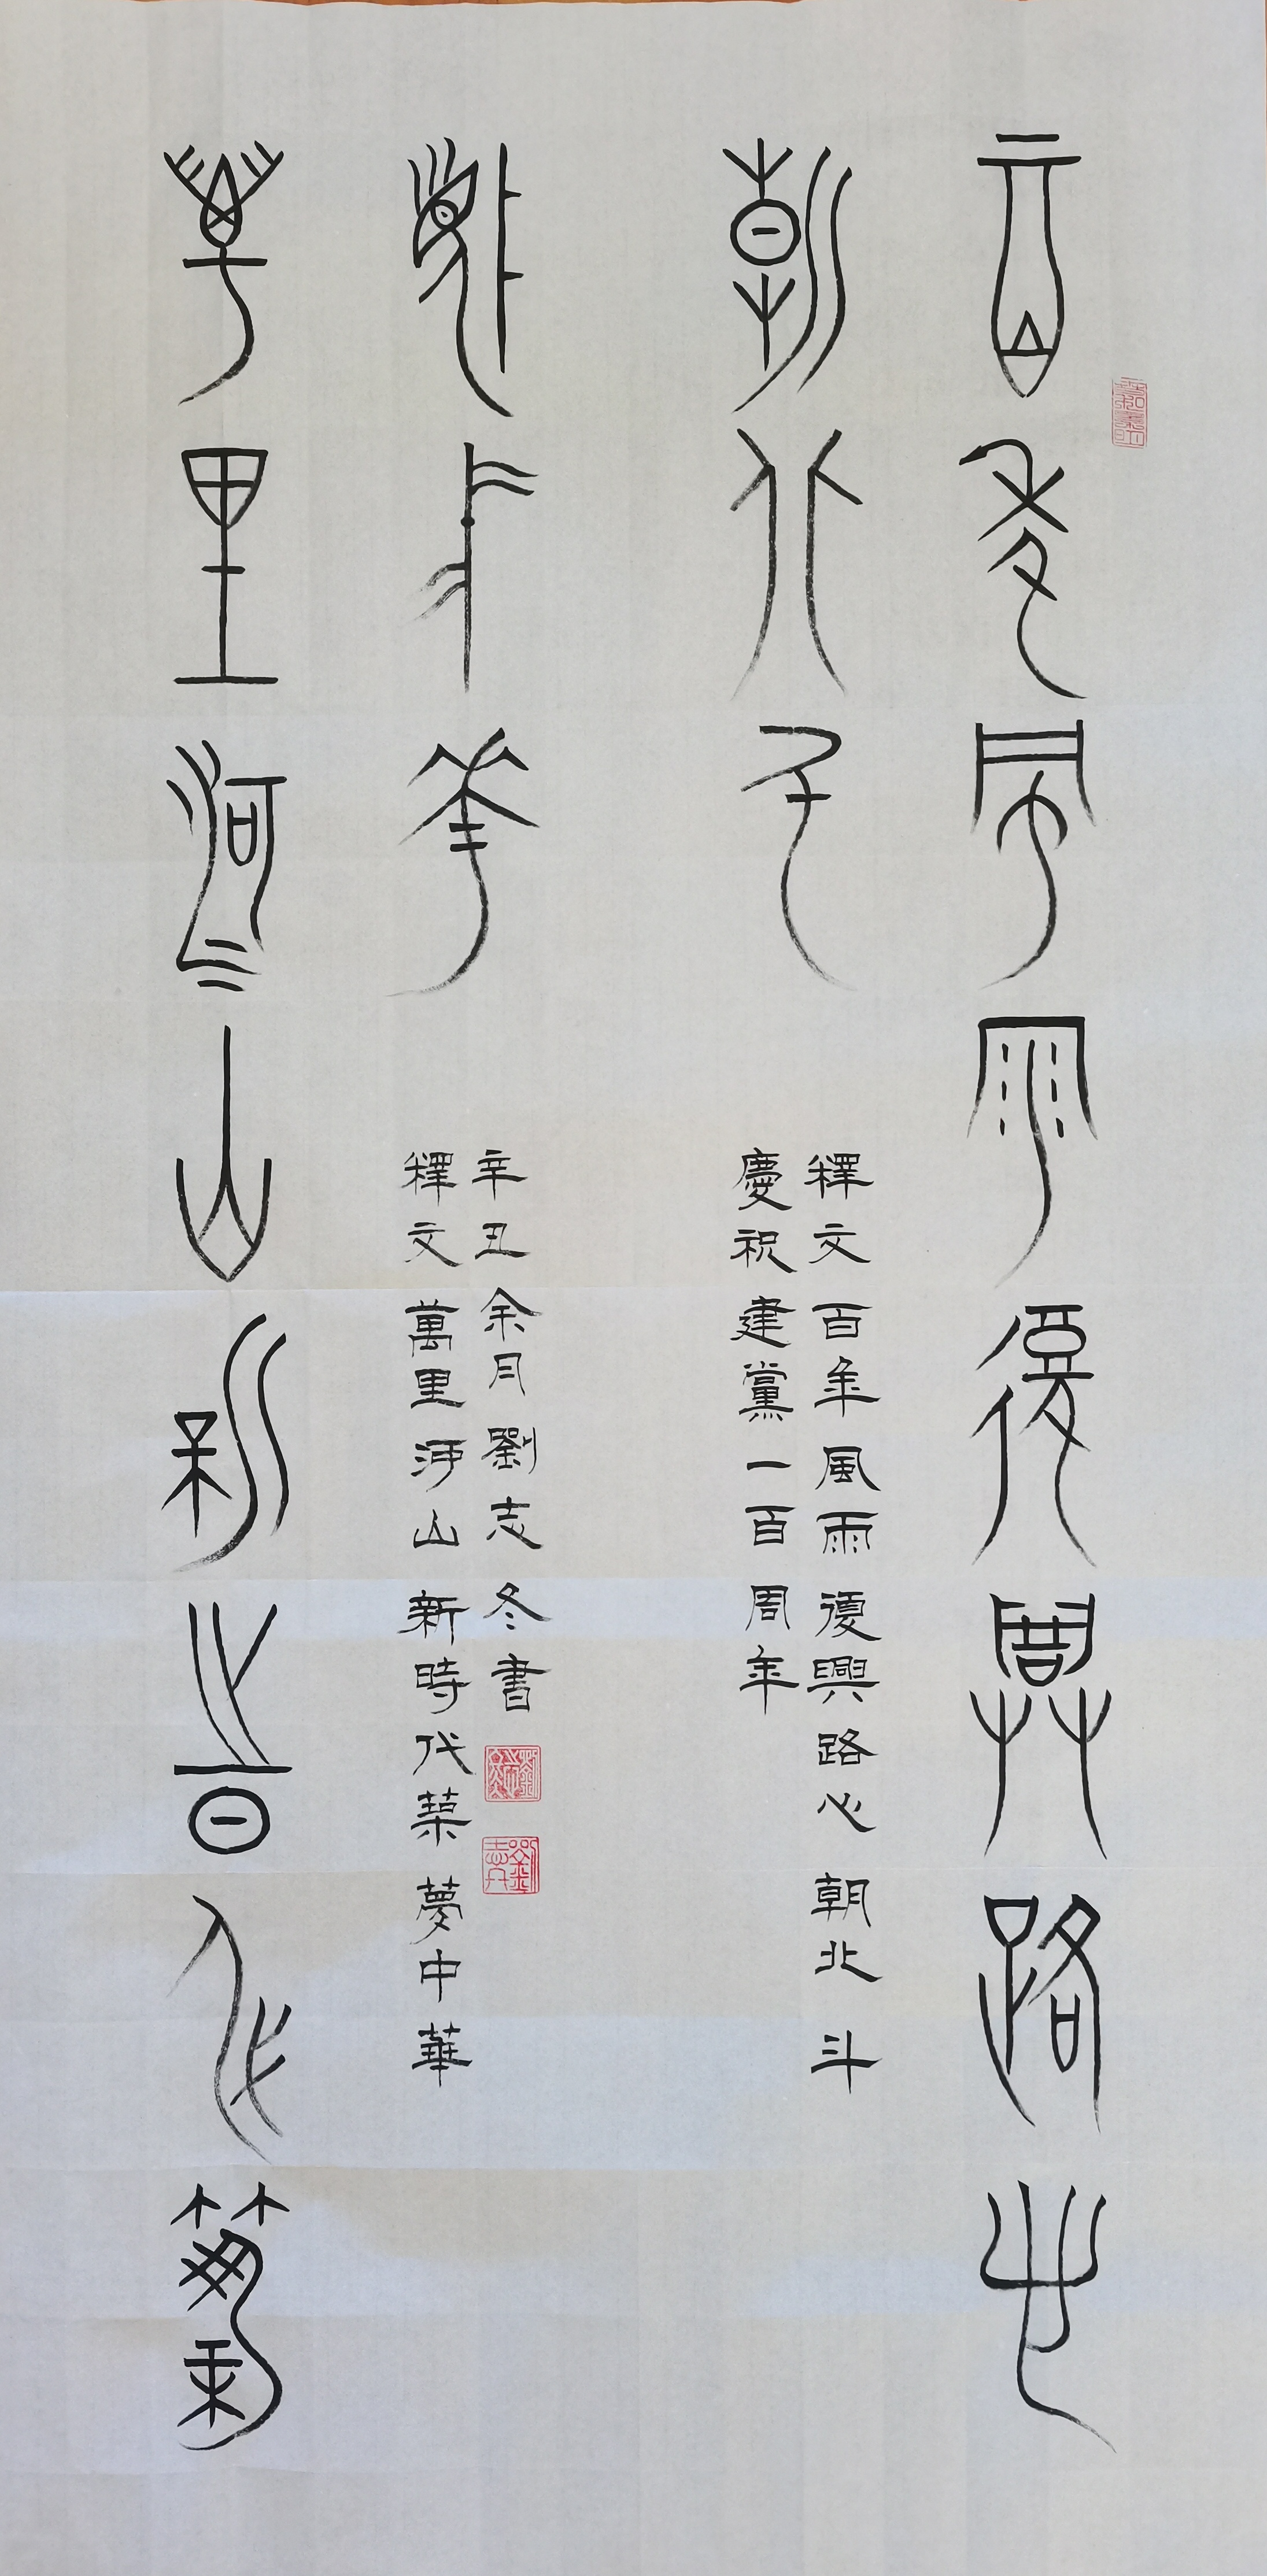 百年風雨復興路心
朝北斗
釋文百年風雨復興路心朝北斗
慶祝建黨一百周年
萬里河山新時代築
夢中華
釋文萬里河山新時代築夢中華
辛丑余月劉志冬書